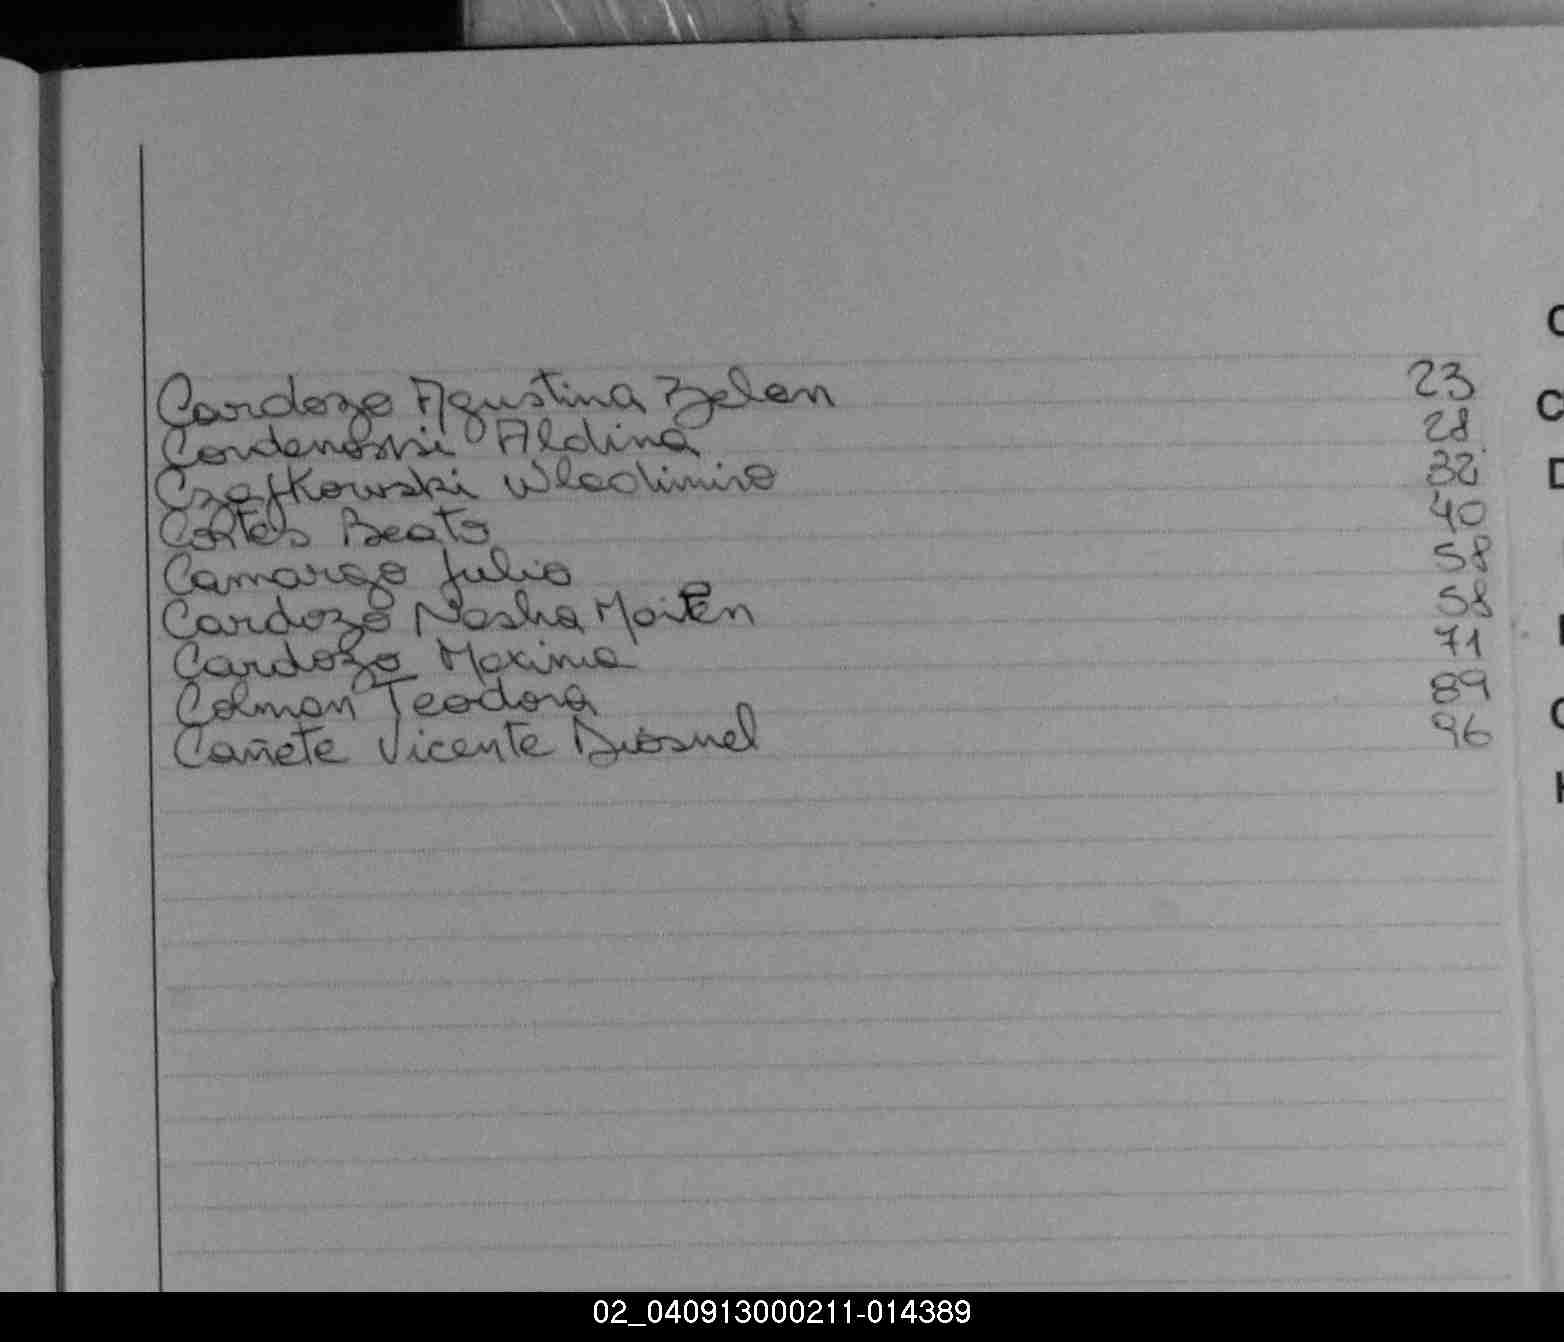 Cardozo Agustina Belen 23
Cordenonssi Aldina 28
Czajkowski Wladimiro 32
Cortes Beato 40
Camargo Julio 58
Cardozo Nasha Maitén 58
Cardozo Maxima 71
Colman Teodora 89
Cañete Vicente Diosnel 96
02_040913000211-014389